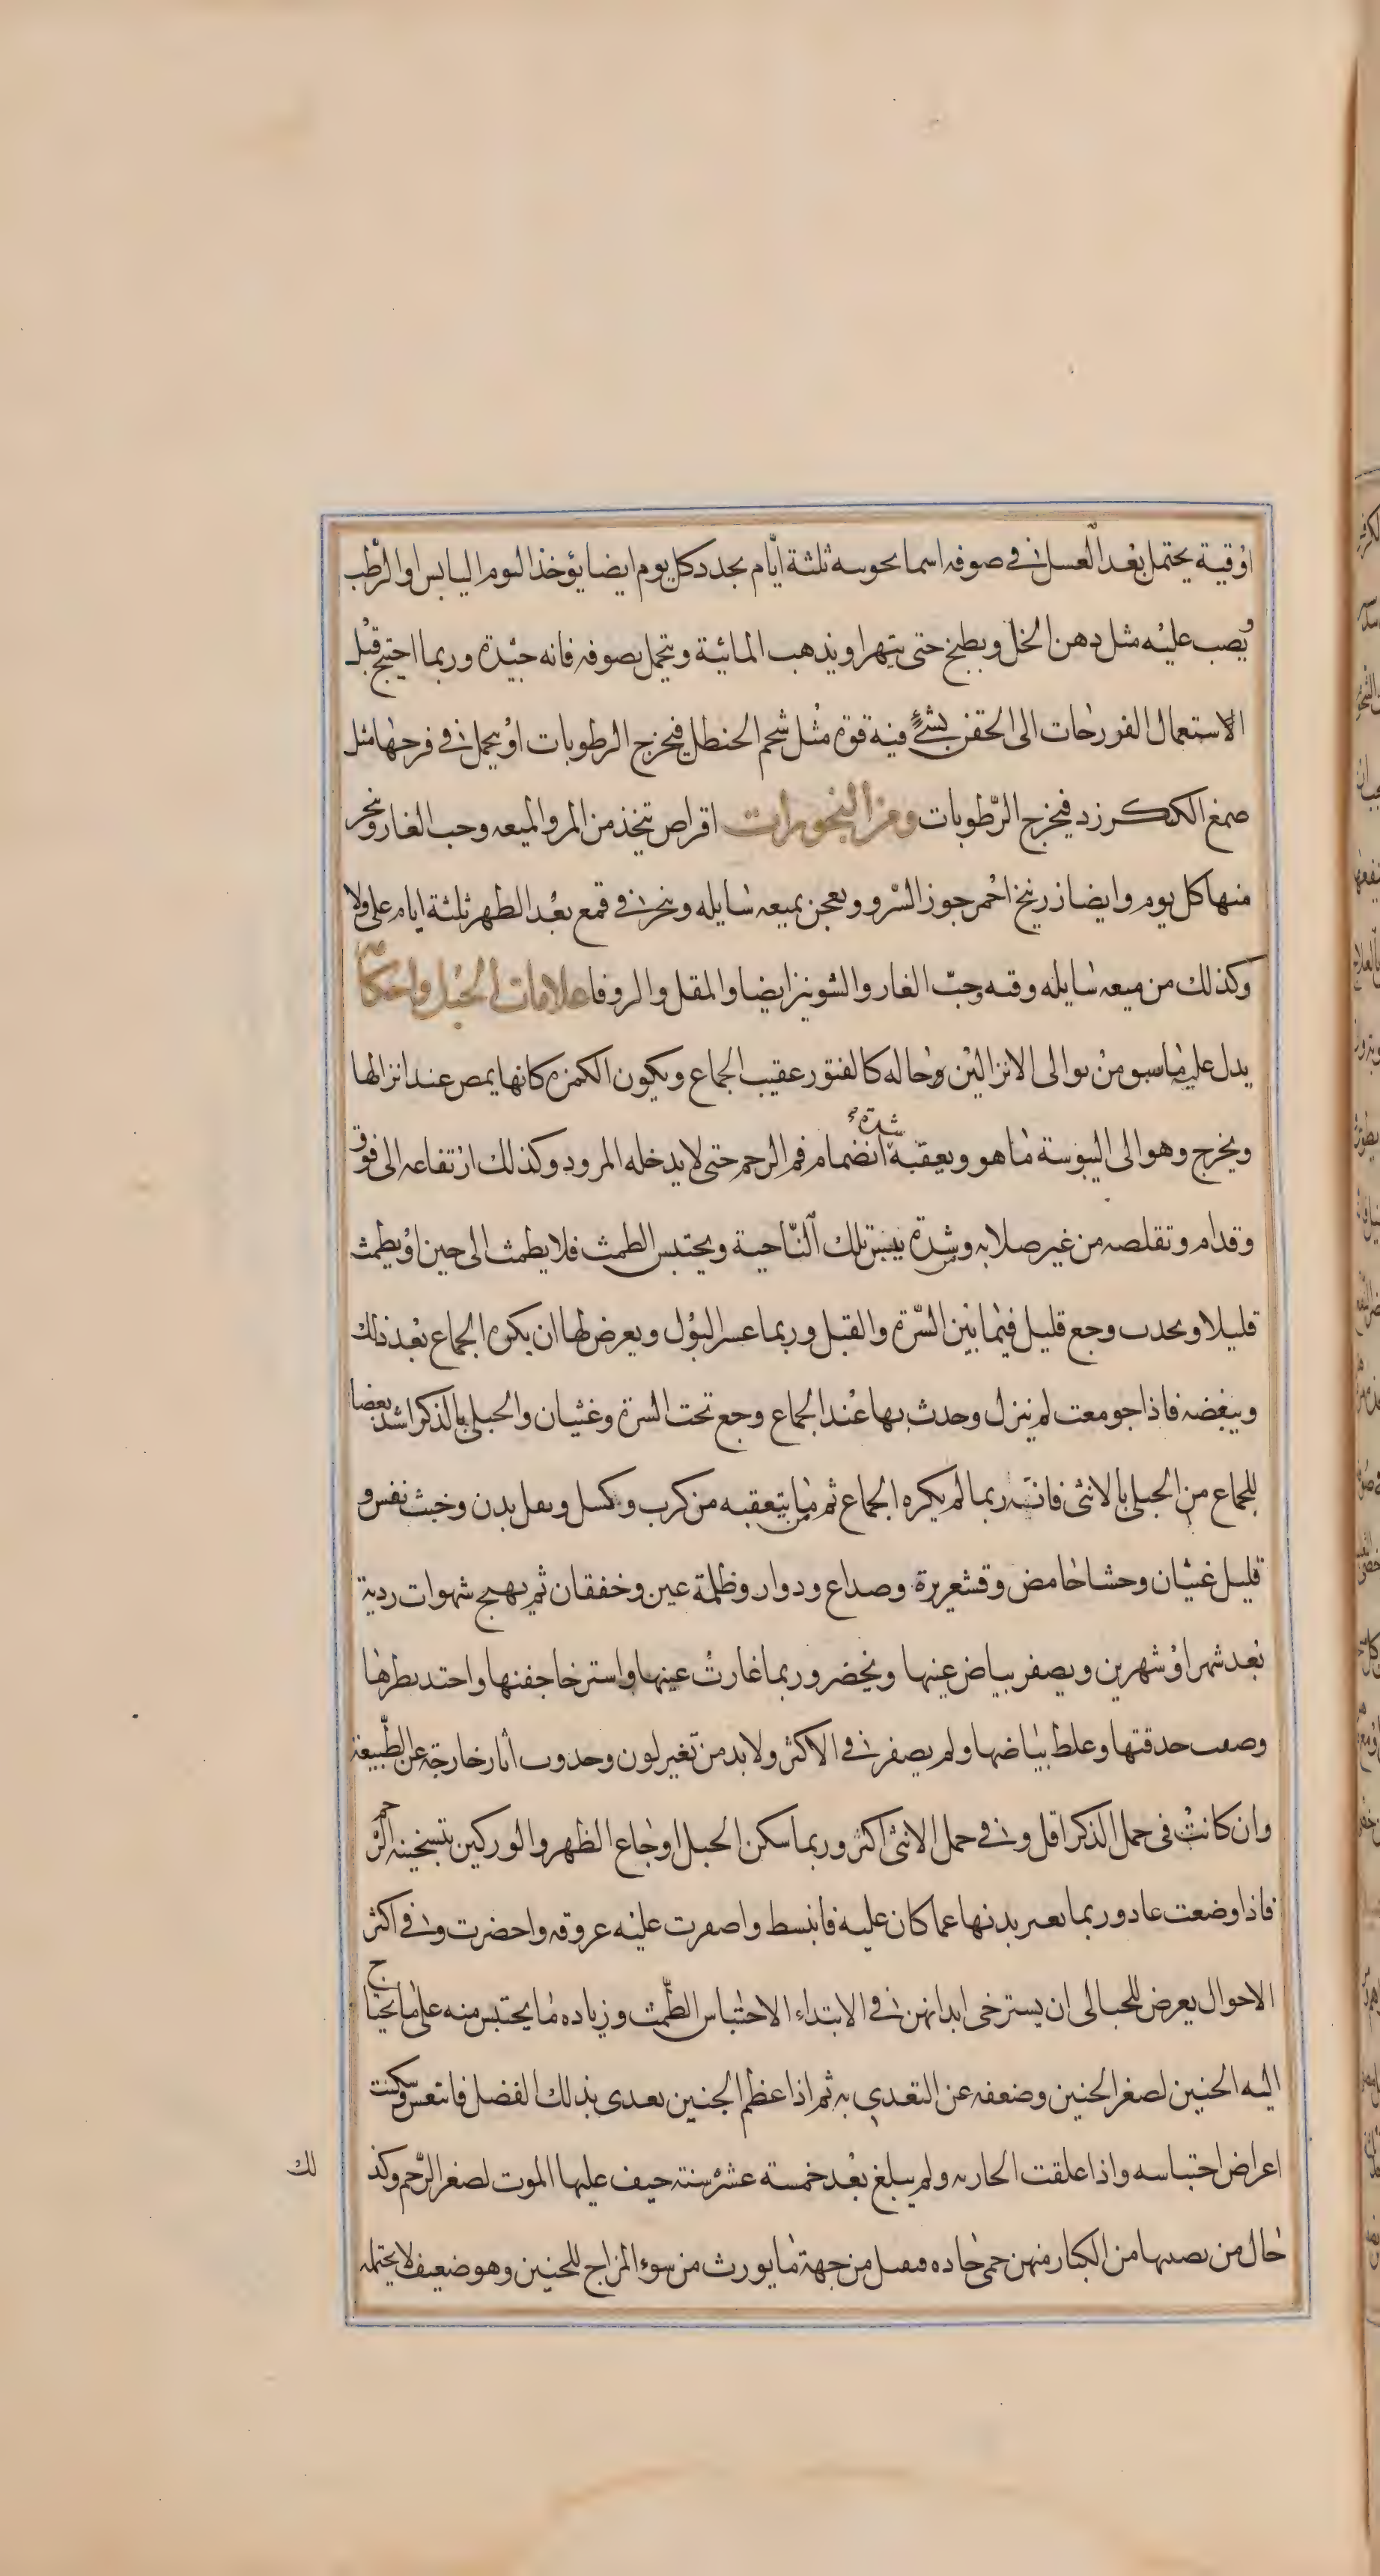 اوقية يحتمل بعد الغسل في صوفه اسمانجونيه ثلثة ايام يجدد كل يوم ايضا يؤخذ الثوم اليابس او الرطب
يصب عليه مثل دهن الخل ويطبخ حتى يتهرا ويذهب المائية ويتحمل بصوفه فانه جيدة وربما احتيج قبل
الاستعمال الفورخات الى الحقن بشئ فيه قوة مثل شحم الحنظل فيخرج الرطوبات او يحمل في فرجها مثل
صمغ الكنكرزد فيخرج الرطوبات ومن البخورات اقراص تتخذ من المر والميعه وحب الغار ويبخر
منها كل يوم وايضا زرنيخ احمر جوز السرو ويعجن بميعه سايله ويبخر في قمع بعد الطهر ثلثة ايام على ولا
وكذلك من ميعه سايله وقنه وحب الغار والشونيز ايضا والمقل والزوفا علامات الحبل واحكامه
يدل عليه ما سبق من توالى الانزالين وحاله كالفتور عقيب الجماع ويكون الكمرة كانها يمص عند انزالها
ويخرج وهو الى اليبوسة ما هو ويعقبه شدة انضمام فم الرحم حتى لا يدخله المرود وكذلك ارتفاعه الى فوق
وقدام وتقلصه من غير صلابه وشدة يبس تلك الناحية ويحتبس الطمث فلا يطمث الى حين او يطمث
قليلا ويحدث وجع قليل فيما بين السرة والقبل وربما عسر البول ويعرض لها ان يكره الجماع بعد ذلك
ويبغضه فاذا جومعت لم ينزل وحدث بها عند الجماع وجع تحت السرة وغثيان والحبلى بالذكر اشد بغضا
للجماع من الحبلى بالانثى فانه ربما لم يكره الجماع ثم ما يتعقبه من كرب وكسل وثقل بدن وخبث نفس و
قليل غثيان وحشا حامض وقشعريرة وصداع ودوار وظلمة عين وخفقان ثم يهيج شهوات ردية
بعد شهر او شهرين ويصفر بياض عينها ويخضر وربما غارت عينها واسترخا جفنها واحتد نظرها
وصفت حدقتها وغلظ بياضها ولم يصفر في الاكثر ولا بد من تغير لون وحدوث اثار خارجة عن الطبيعة
وان كانت في حمل الذكر اقل وفي حمل الانثى اكثر وربما سكن الحبل اوجاع الظهر والوركين بتسخينه الرحم
فاذا وضعت عاد وربما تغير بدنها عما كان عليه فانبسط واصفرت عليه عروقه واخضرت وفي اكثر
الاحوال يعرض للحبالى ان يسترخى ابدانهن في الابتداء الاحتباس الطمث وزياده ما يحتبس منه على ما يحتاج
اليه الجنين لصغر الجنين وضعفه عن التغدي به ثم اذا عظم الجنين تغدى بذلك الفضل فانتعس وسكنت
اعراض احتباسه واذا علقت الجاريه ولم يبلغ بعد خمسة عشر سنة خيف عليها الموت لصغر الرحم وكذ
لك
حال من يصيبها من الكبار منهن حمى حاده فيقتل من جهة ما يورث من سوء المزاج للجنين وهو ضعيف لا يحتمله